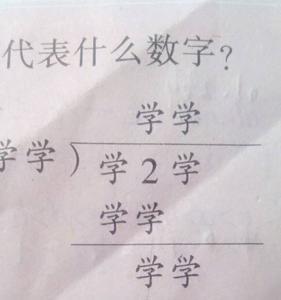 代表什么数字?
学学
学学)学2学
学学
学学